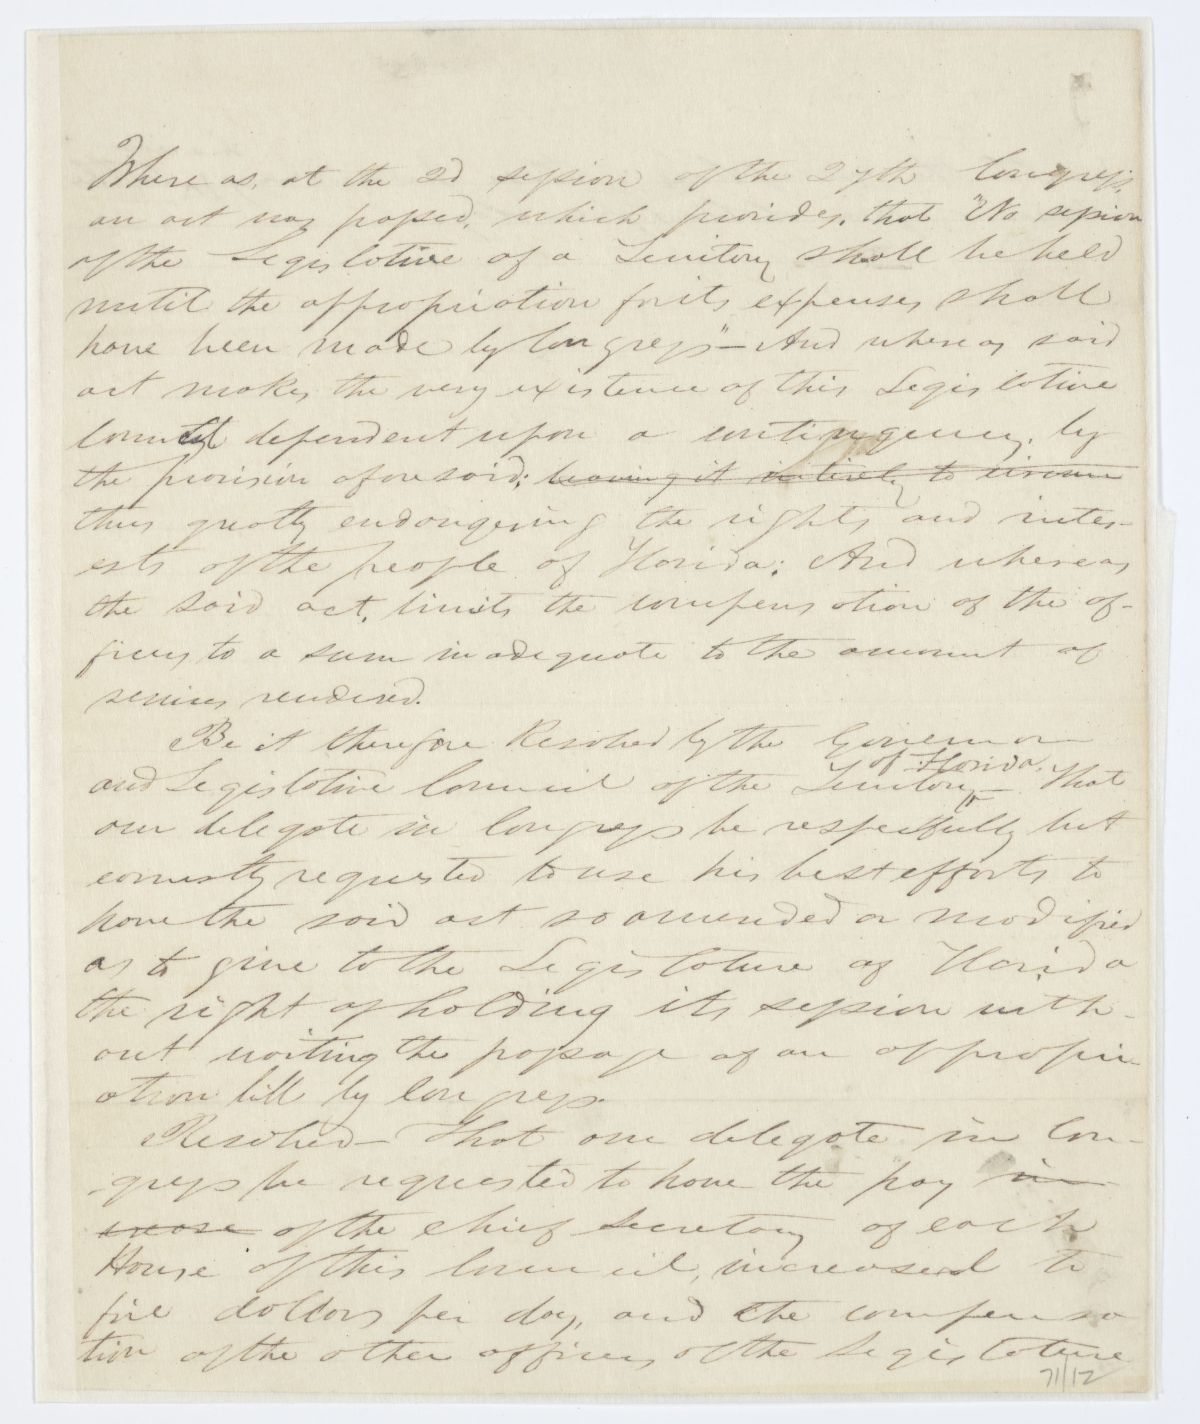 Where as, at the 2d session of the 27th Congress,
an act was passed, which provides, that "No session
of the Legislative of a Territory shall be held
until the appropriation for its expenses shall
have been made by Congress"— And whereas said
act makes the very existence of this Legislative
Council dependent upon a contingency, by
the provision aforesaid; leaving it intirely to circum
thus greatly endangering the rights and inter-
ests of the people of Florida; And whereas
the said act, limits the compensation of the of-
ficers to a sum inadequate to the amount of
services rendered.
Be it therefore Resolved by the Governor
of Florida.
and Legislative Council of the Territory— That
our delegate in Congress be respectfully but
earnestly requested to use his best efforts to
have the said act so amended or modified
as to give to the Legislature of Florida
the right of holding its session with-
out waiting the passage of an appropri-
ation bill by Congress.
Resolved— That our delegate in Con-
gress be requested to have the pay in
crease of the chief Secretary of each
House of this Council, increased to
five dollars per day, and the compensa
tion of the other officers of the Legislature
71/12